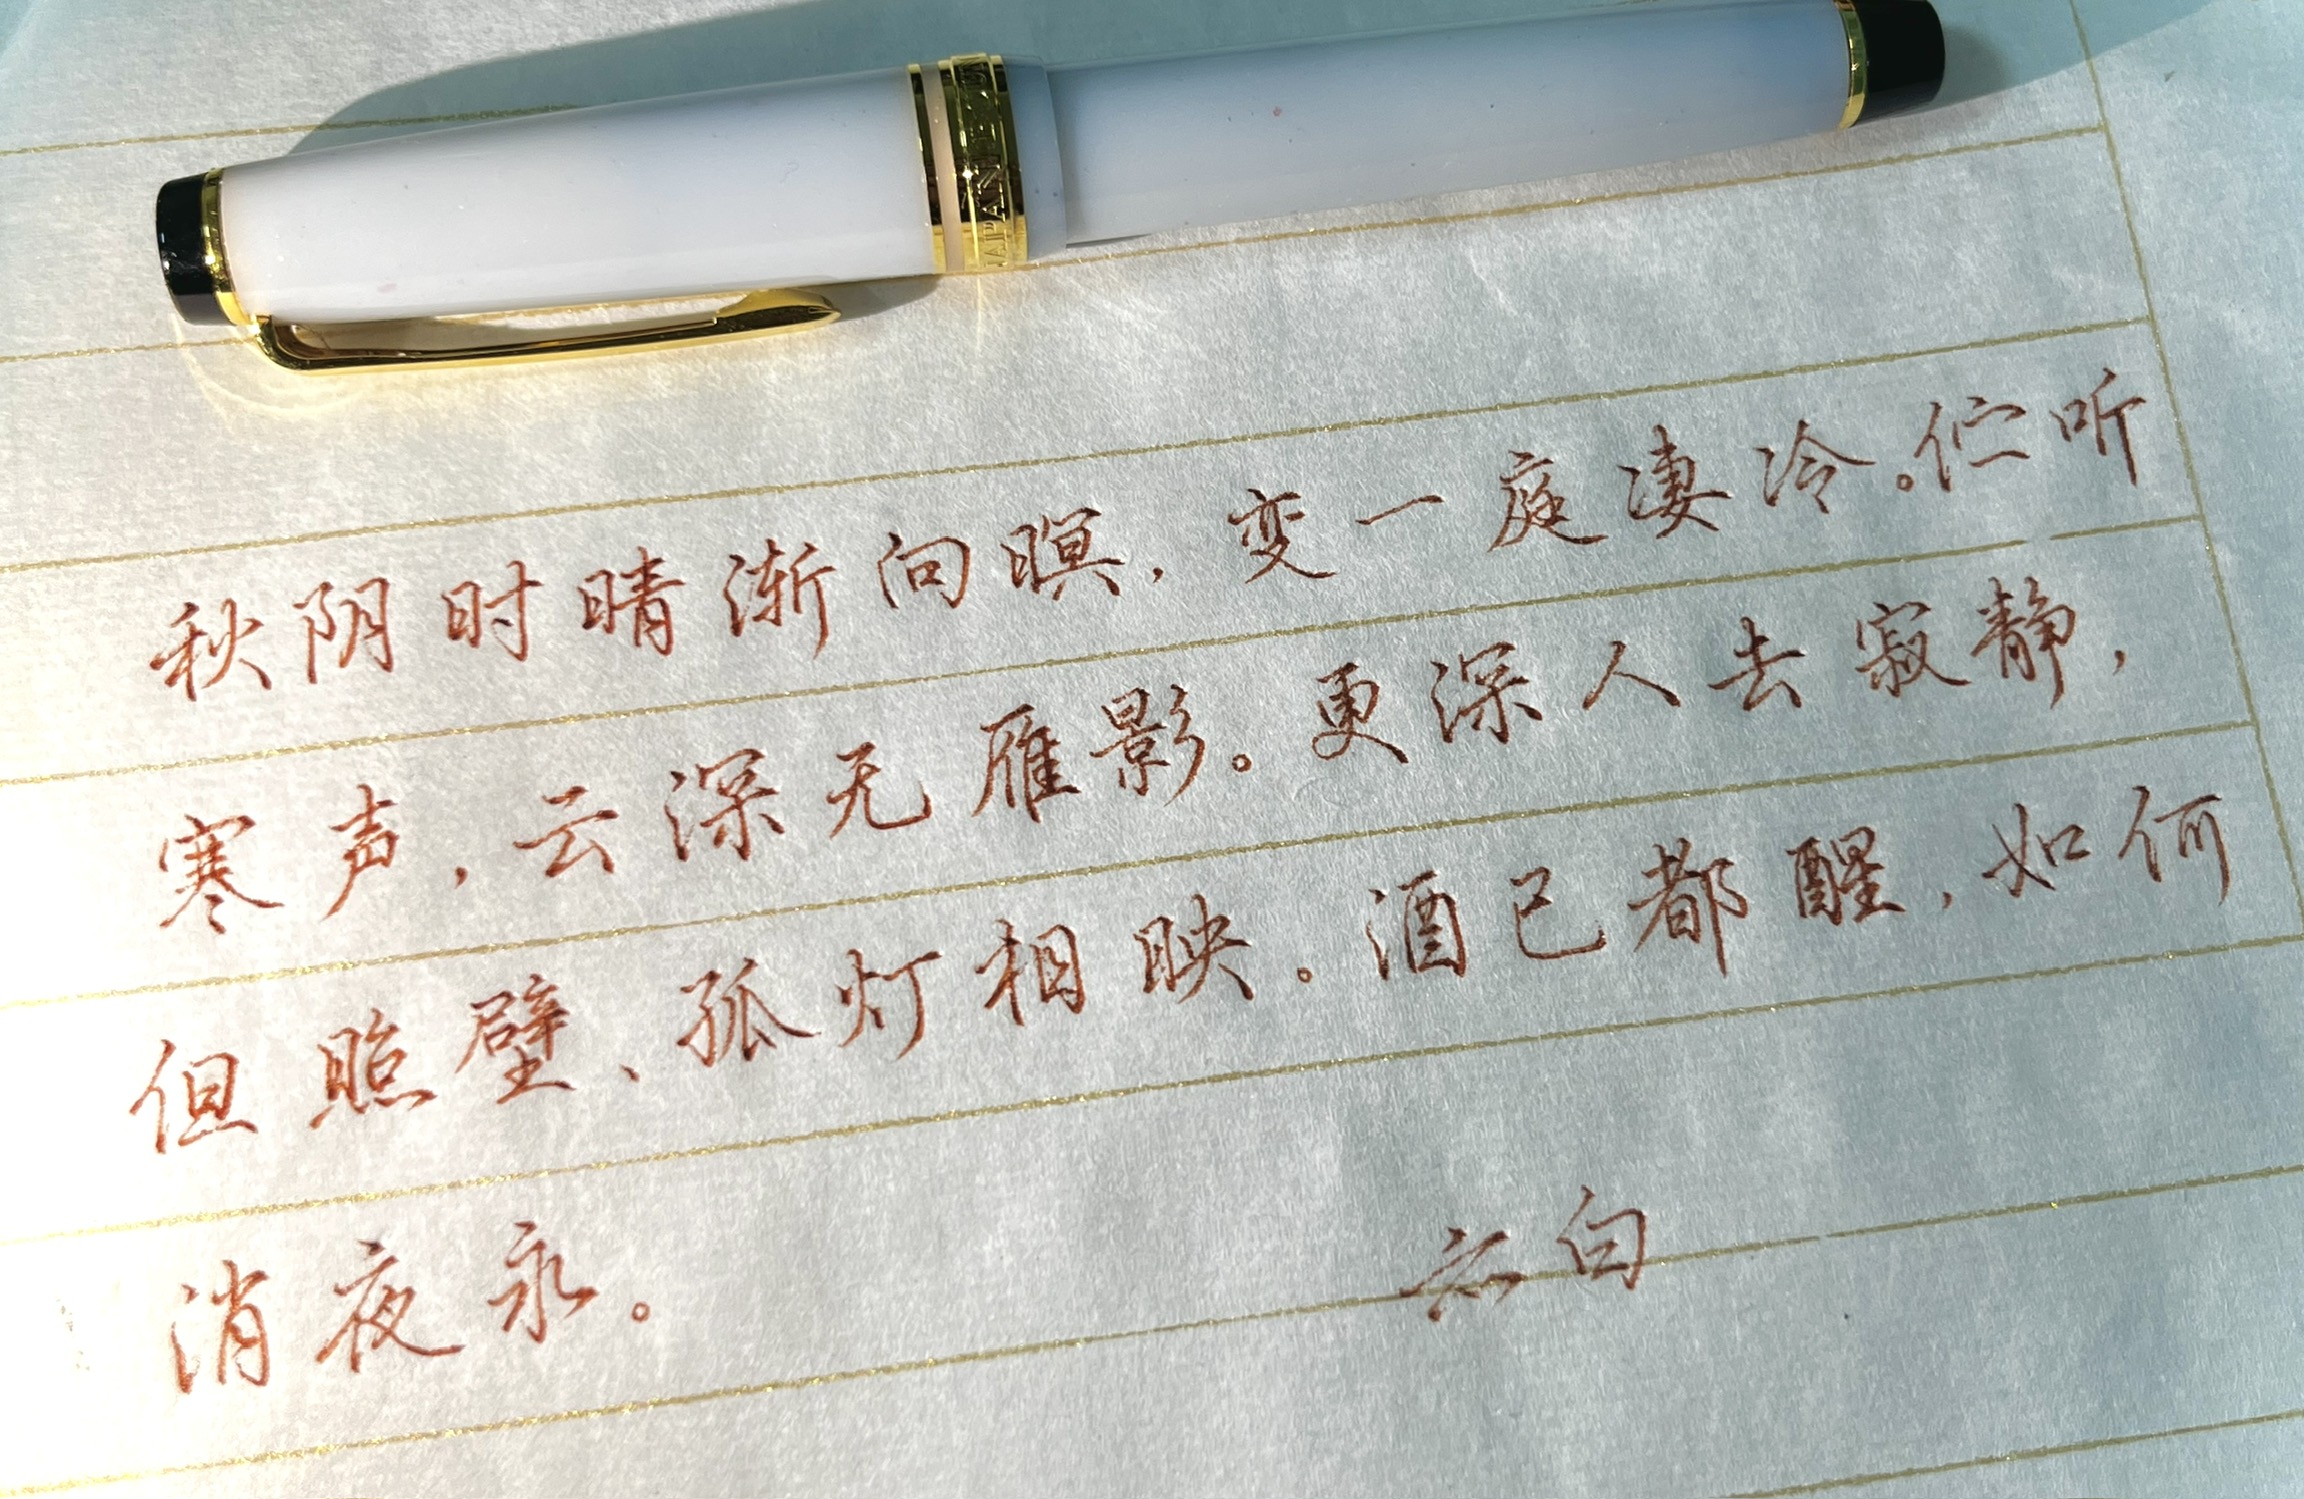 JAPAN
秋阴时晴渐向暝，变一庭凄冷。伫听
寒声，云深无雁影。更深人去寂静，
但照壁、孤灯相映。酒已都醒，如何
消夜永。
云白